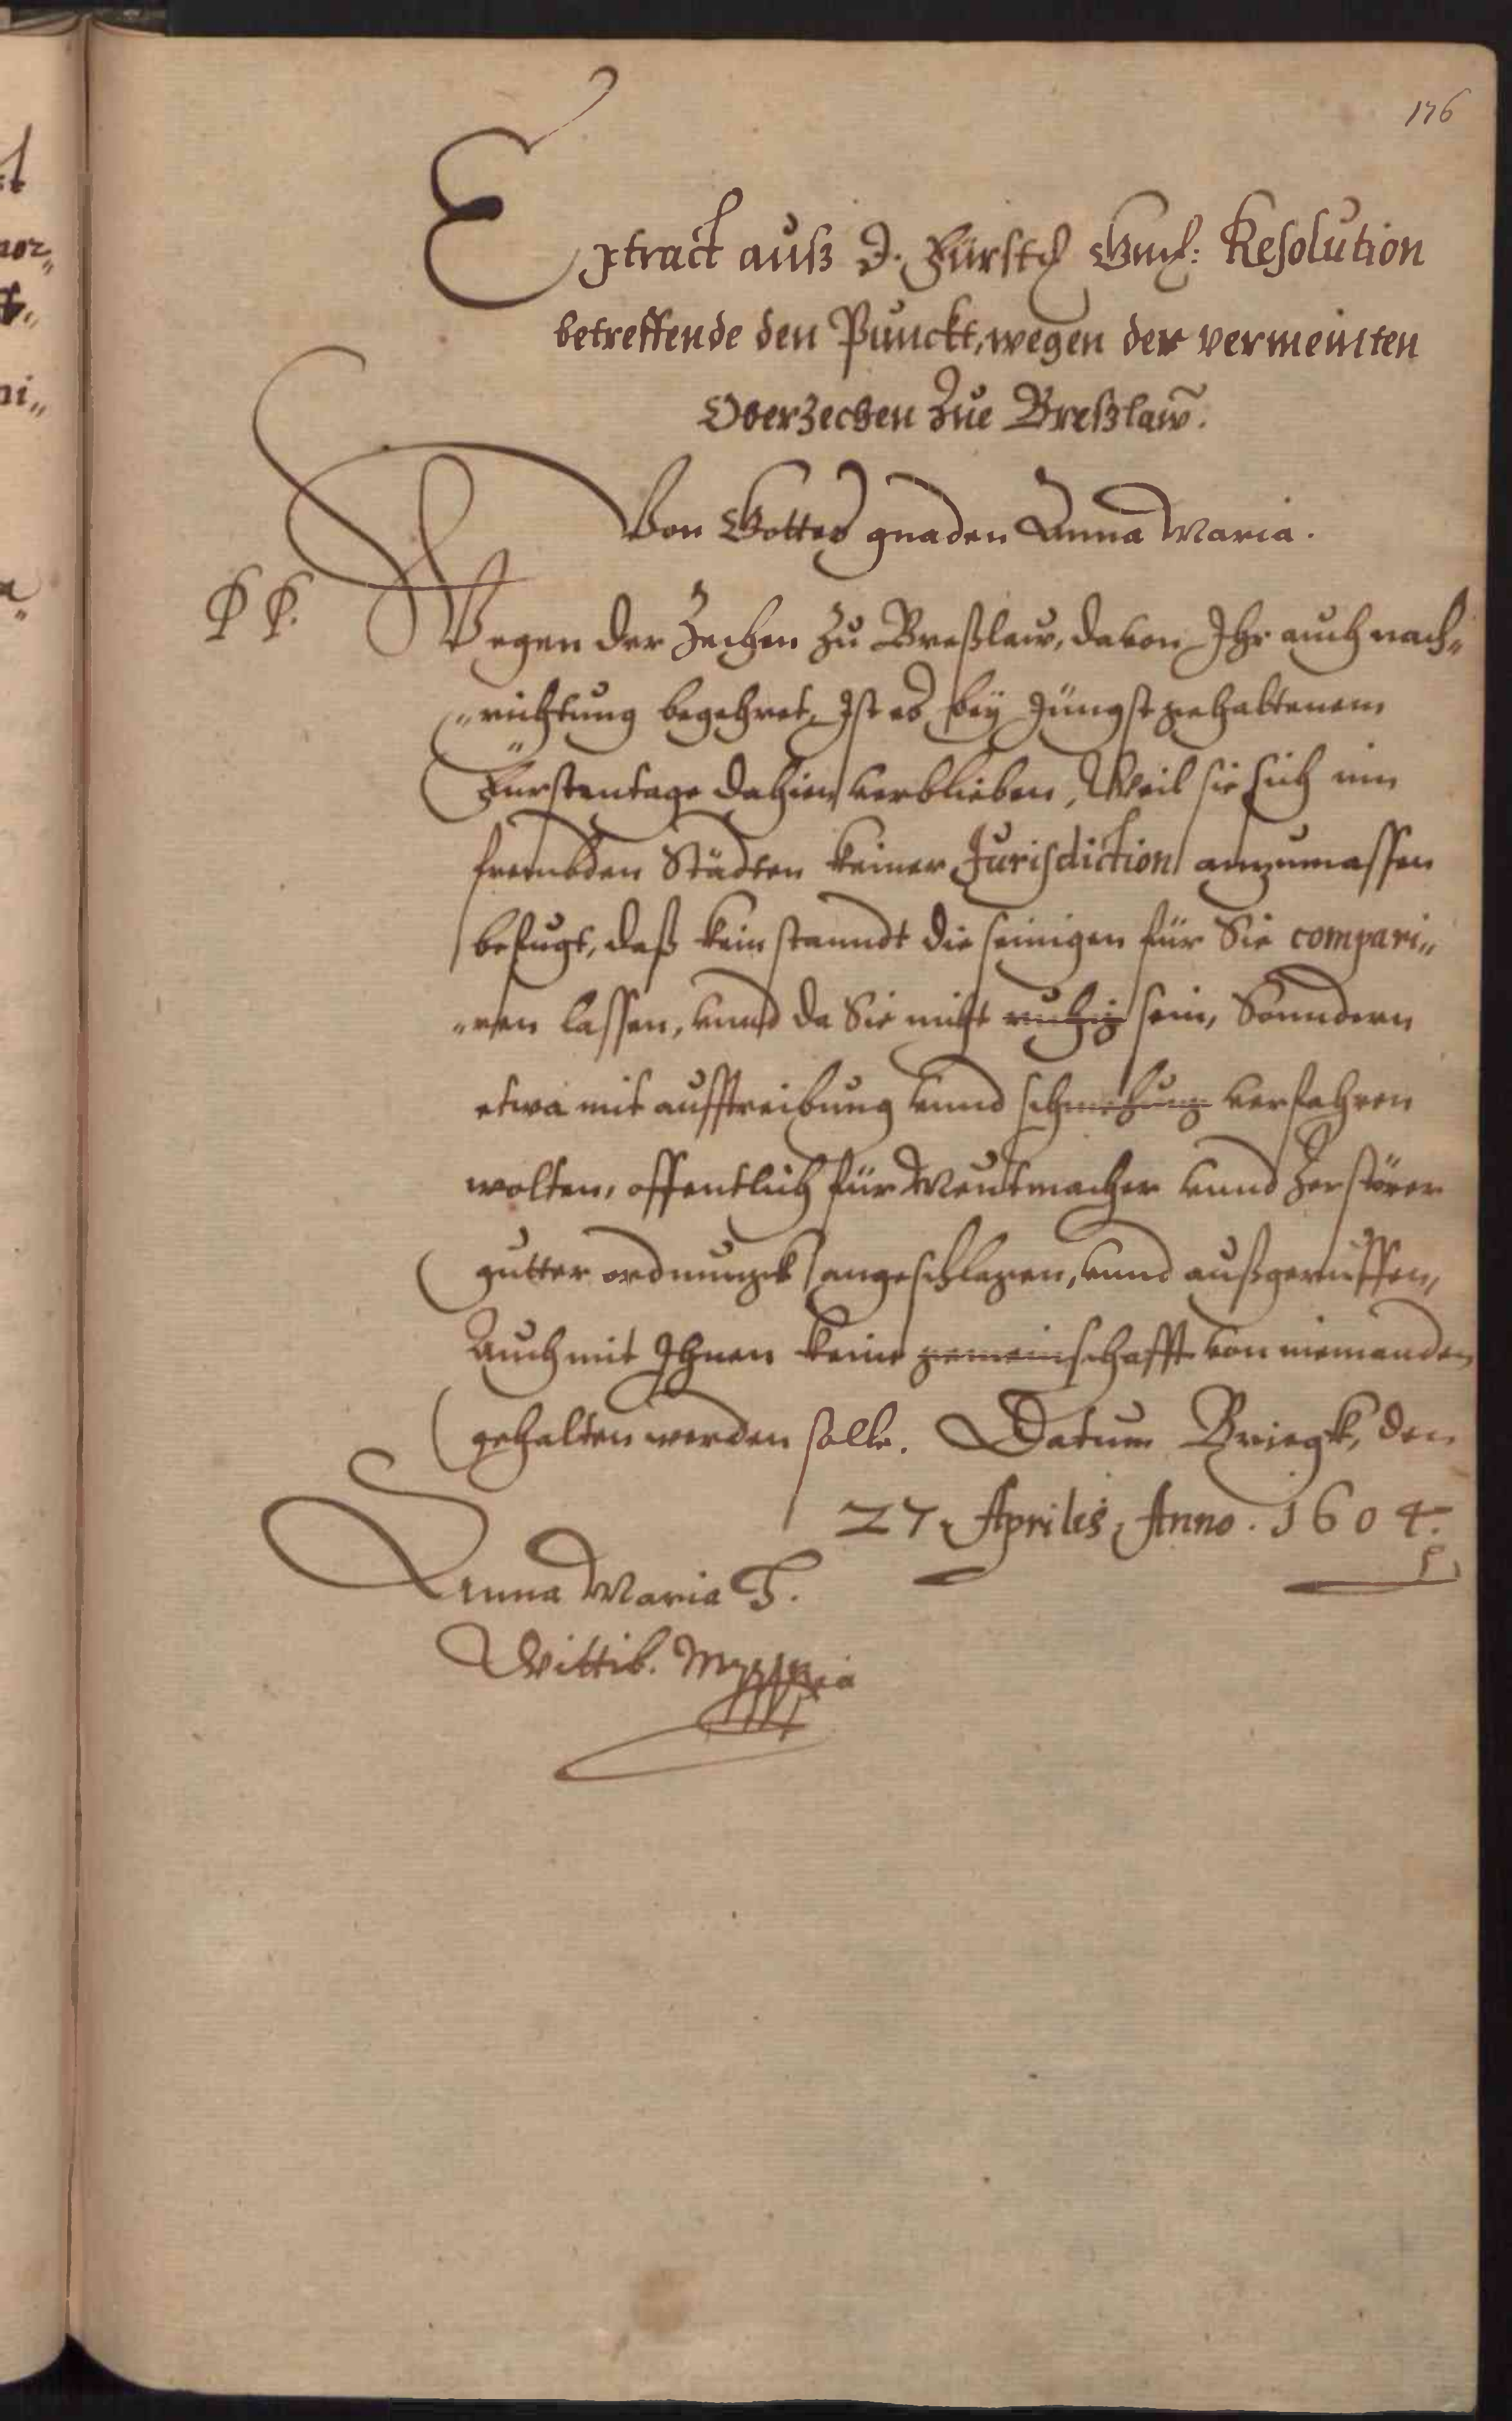 176
Extract auß D. Fürstl Gnd: Resolution
betreffende den Punckt, wegen der vermeinten
Oberzechen Zue Breßlaw.
Von Gottes gnaden Anna Maria.
P P. Wegen der Zechen zu Breßlaw, davon Ihr auch nach„
„richtung begehret, Ist es bey jüngst gehaltenem
Fürstentage dahien verblieben, Weil sie sich inn
frembden Städten keiner Jurisdiction anzumassen
befugt, daß kein standt die seinigen für Sie compari„
„ren lassen, vnnd da Sie nicht ruhig sein, Sonndern
etwa mit aufftreibung vnnd schmehung verfahren
wolten, offentlich für Meutmacher vnnd Zerstörer
gutter ordnungk angeschlagen, vnnd außgeruffen,
Auch mit Ihnen keine gemeinschafft von niemanden
gehalten werden solle. Datum Briegk, den
27. Apriles, Anno. 1604.
Anna Maria H.
Wittib. Mppria